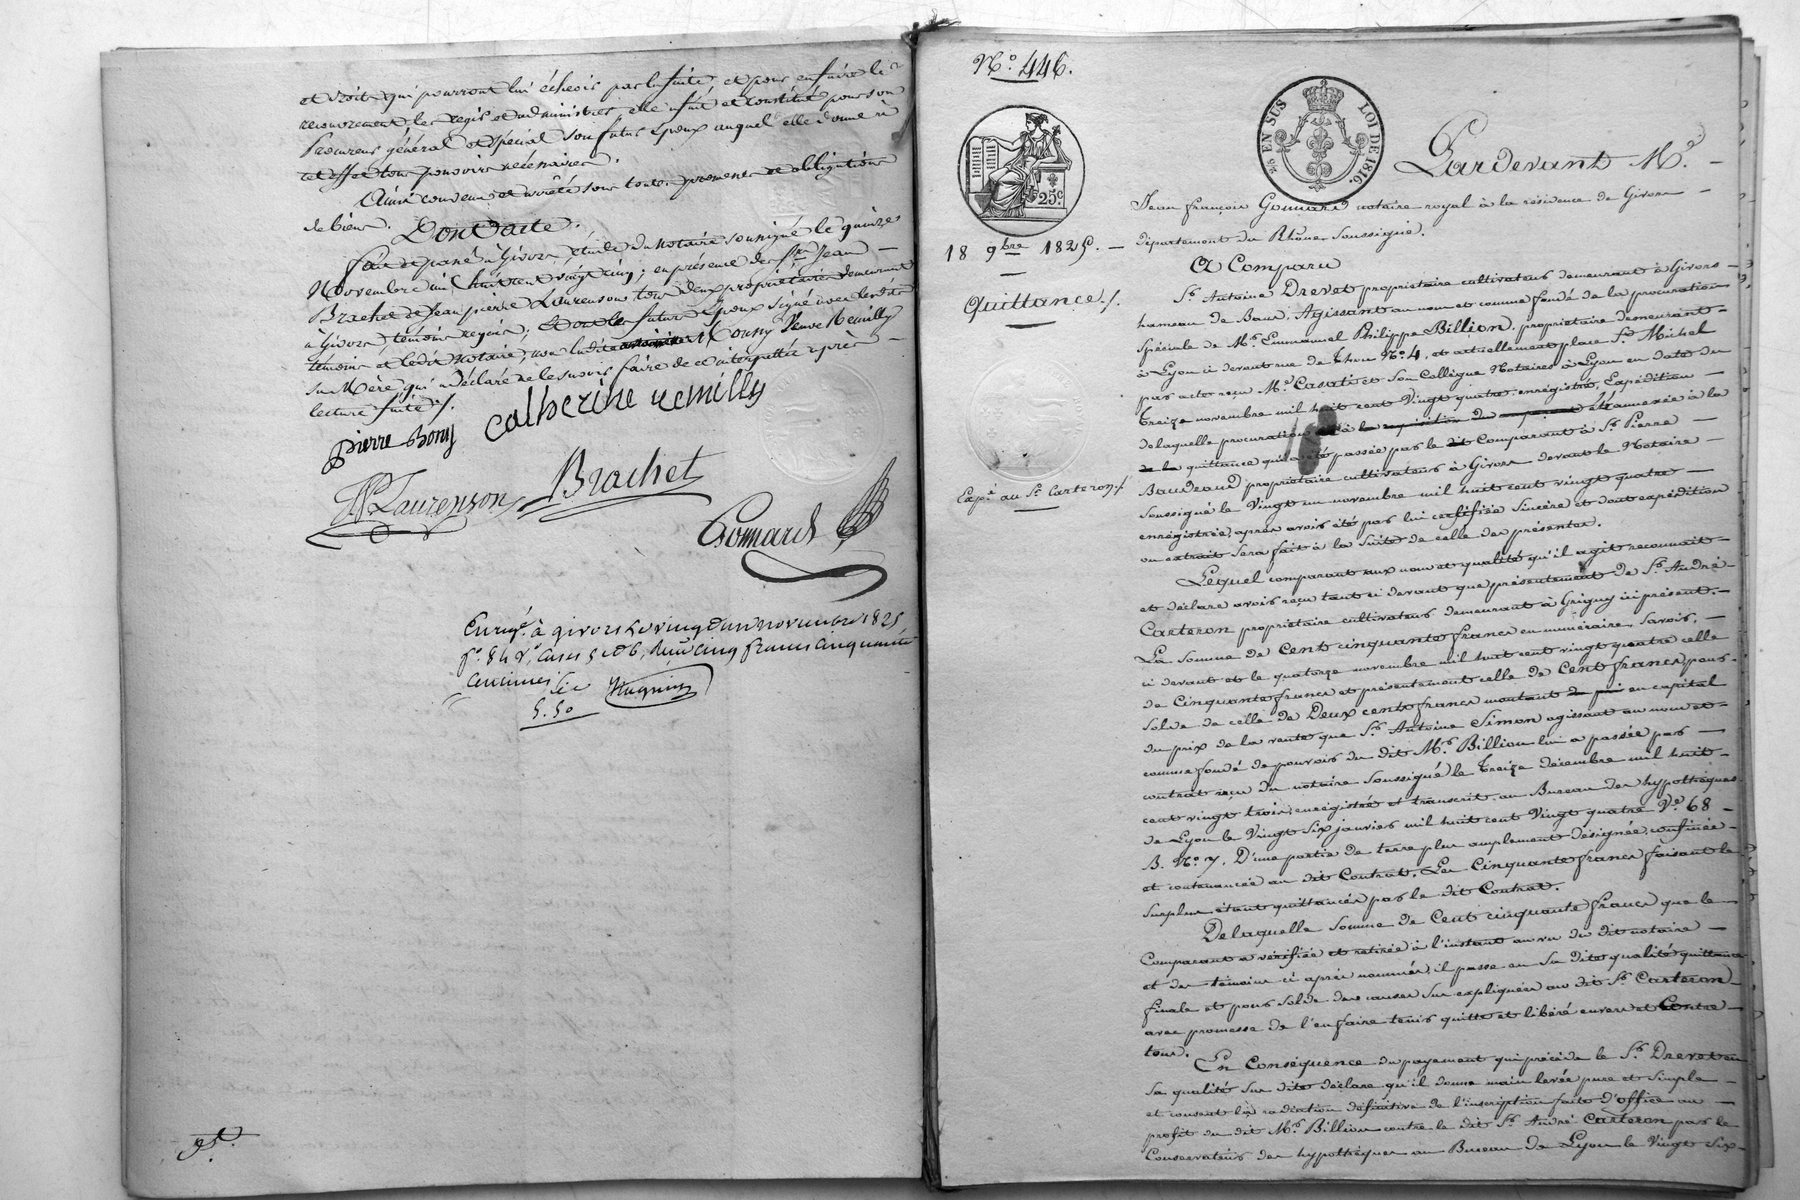 et droits qui pourront lui écheois par la suite et pour en faire le
recouvrement les régir et administrer elle a fait et constitué pour son
Procureur général et spécial son futur epoux auquel elle donne à
cet effet tous pouvoirs nécessaires.
Ainsi convenu et arrêté sous toutes promesses et obligations
de biens. Dont acte.
fait et passé à Givors, étude du notaire soussigné le quinze
Novembre mil huit cent vingt cinq; en présence de Srs Jean
Brachet et Jean pierre Laurenson tous deux propriétaires demeurant
à Givors, témoins requis; et ont les futurs epoux signé avec lesdits
témoins et ledit notaire, non ladite Couny Veuve Remilly
sa Mère qui a déclaré ne le savoir faire de ce interpellée après
lecture faite./.
pierre Bony catherine remilly
JP Laurenson Brachet
Gonnard
Enregé. à givors le vingt un novembre 1825
fo. 84 Vo. cases 5 et 6, reçu cinq francs cinquante
centimes
5.50
No. 446.
EN SUS LOI DE 1816.
25c
Pardevant Me.
Jean françois Gonnard notaire royal à la résidence de Givors
18 9bre 1825.
département du Rhône, soussigné.
A Comparu
Quittance./.
Sr. Antoine Drevet propriétaire cultivateur demeurant à Givors
hameau de Bans. Agissant au nom et comme fondé de la procuration
spéciale de Mr. Emmanuel Philippe Billion, propriétaire demeurant
à Lyon ci devant rue de Thou No. 4, et actuellement place St. Michel
par acte reçu Me. Casati et son Collègue Notaires à Lyon en date du
treize novembre mil huit cent vingt quatre, enregistré, Expédition
de laquelle procuration à la réquisition du comparant été annexée à la
de la quittance qui a été passée par le dit Comparant à Sr. Pierre
Baudrand propriétaire cultivateur à Givors devant le Notaire
Expé. au Sr. Carteron./.
soussigné le Vingt un novembre mil huit cent vingt quatre
enregistrée, après avoir été par lui certifiée sincère et dont expédition
ou extrait sera fait à la suite de celle des présentes.
Lequel comparant aux nom et qualité qu'il agit reconnait
et déclare avoir reçu tant ci devant que présentement de Sr. André
Carteron propriétaire cultivateur demeurant à Grigny ici présent.
La somme de cent cinquante francs en numéraire, Savoir,
ci devant et le quatorze novembre mil huit cent vingt quatre celle
de Cinquante francs et présentement celle de Cent francs pour
solde de celle de Deux cents francs montant en capital
du prix de la vente que Sr. Antoine Simon agissant au nom et
comme fondé de pouvoir du dit Mr. Billion lui a passée par
contrat reçu du notaire soussigné le treize décembre mil huit
cent vingt trois, enregistré et transcrit au Bureau des hypothèques
de Lyon le Vingt six janvier mil huit cent Vingt quatre Ve. 68
B. No. 7. D'une partie de terre plus amplement désignée, confinée
et contenancée au dit Contrat. Les Cinquante francs faisant le
surplus étant quittancés par le dit Contrat.
De laquelle somme de Cent cinquante francs que le
comparant a vérifiée et retirée à l'instant au vu du dit notaire
et des témoins ci après nommés, il passe en sa dite qualité quittance
finale et pour solde des causes sus expliquées au dit Sr. Carteron
avec promesse de l'en faire tenir quitte et libéré envers et contre
tous.
En Conséquence du payement qui précède le Sr. Drevet en
sa qualité sus dite déclare qu'il donne main levée pure et simple
et consent la radiation définitive de l'inscription faite d'office au
profit du dit Mr. Billion contre le dit Sr. André Carteron par le
Conservateur des hypothèques au Bureau de Lyon le Vingt six